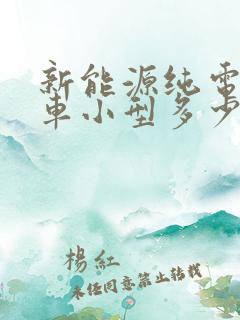 新能源纯電
車小型多少
楊紅
未经同意禁止转载